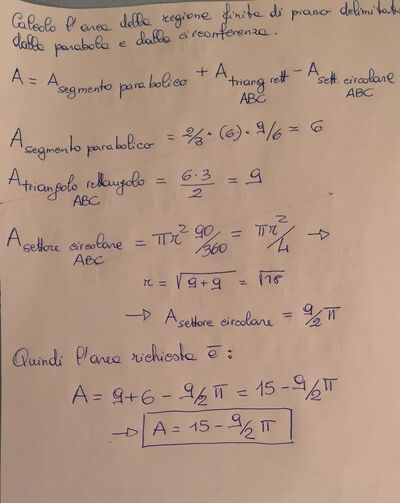 Calcolo l'area della regione finita di piano delimitata
dalla parabola e dalla circonferenza.
A = A segmento parabolico + A triang rett ABC - A sett. circolare ABC
A segmento parabolico = 2/3 · (6) · 9/6 = 6
A triangolo rettangolo ABC = 6·3/2 = 9
A settore circolare ABC = πr² 90/360 = πr²/4 →
r = √9+9 = √18
→ A settore circolare = 9/2 π
Quindi l'area richiesta è:
A = 9+6 - 9/2 π = 15 - 9/2 π
→ A = 15 - 9/2 π